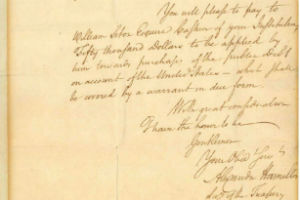 You will please to pay to
William Seton Esquire Cashier of your Institution
Fifty thousand Dollars to be applied by
him towards purchases of the public Debt
on account of the United States – which shall
be covered by a warrant in due form
With great consideration
I have the honor to be
Gentlemen
Your Obed Serv
Alexander Hamilton
Sec of the Treasury